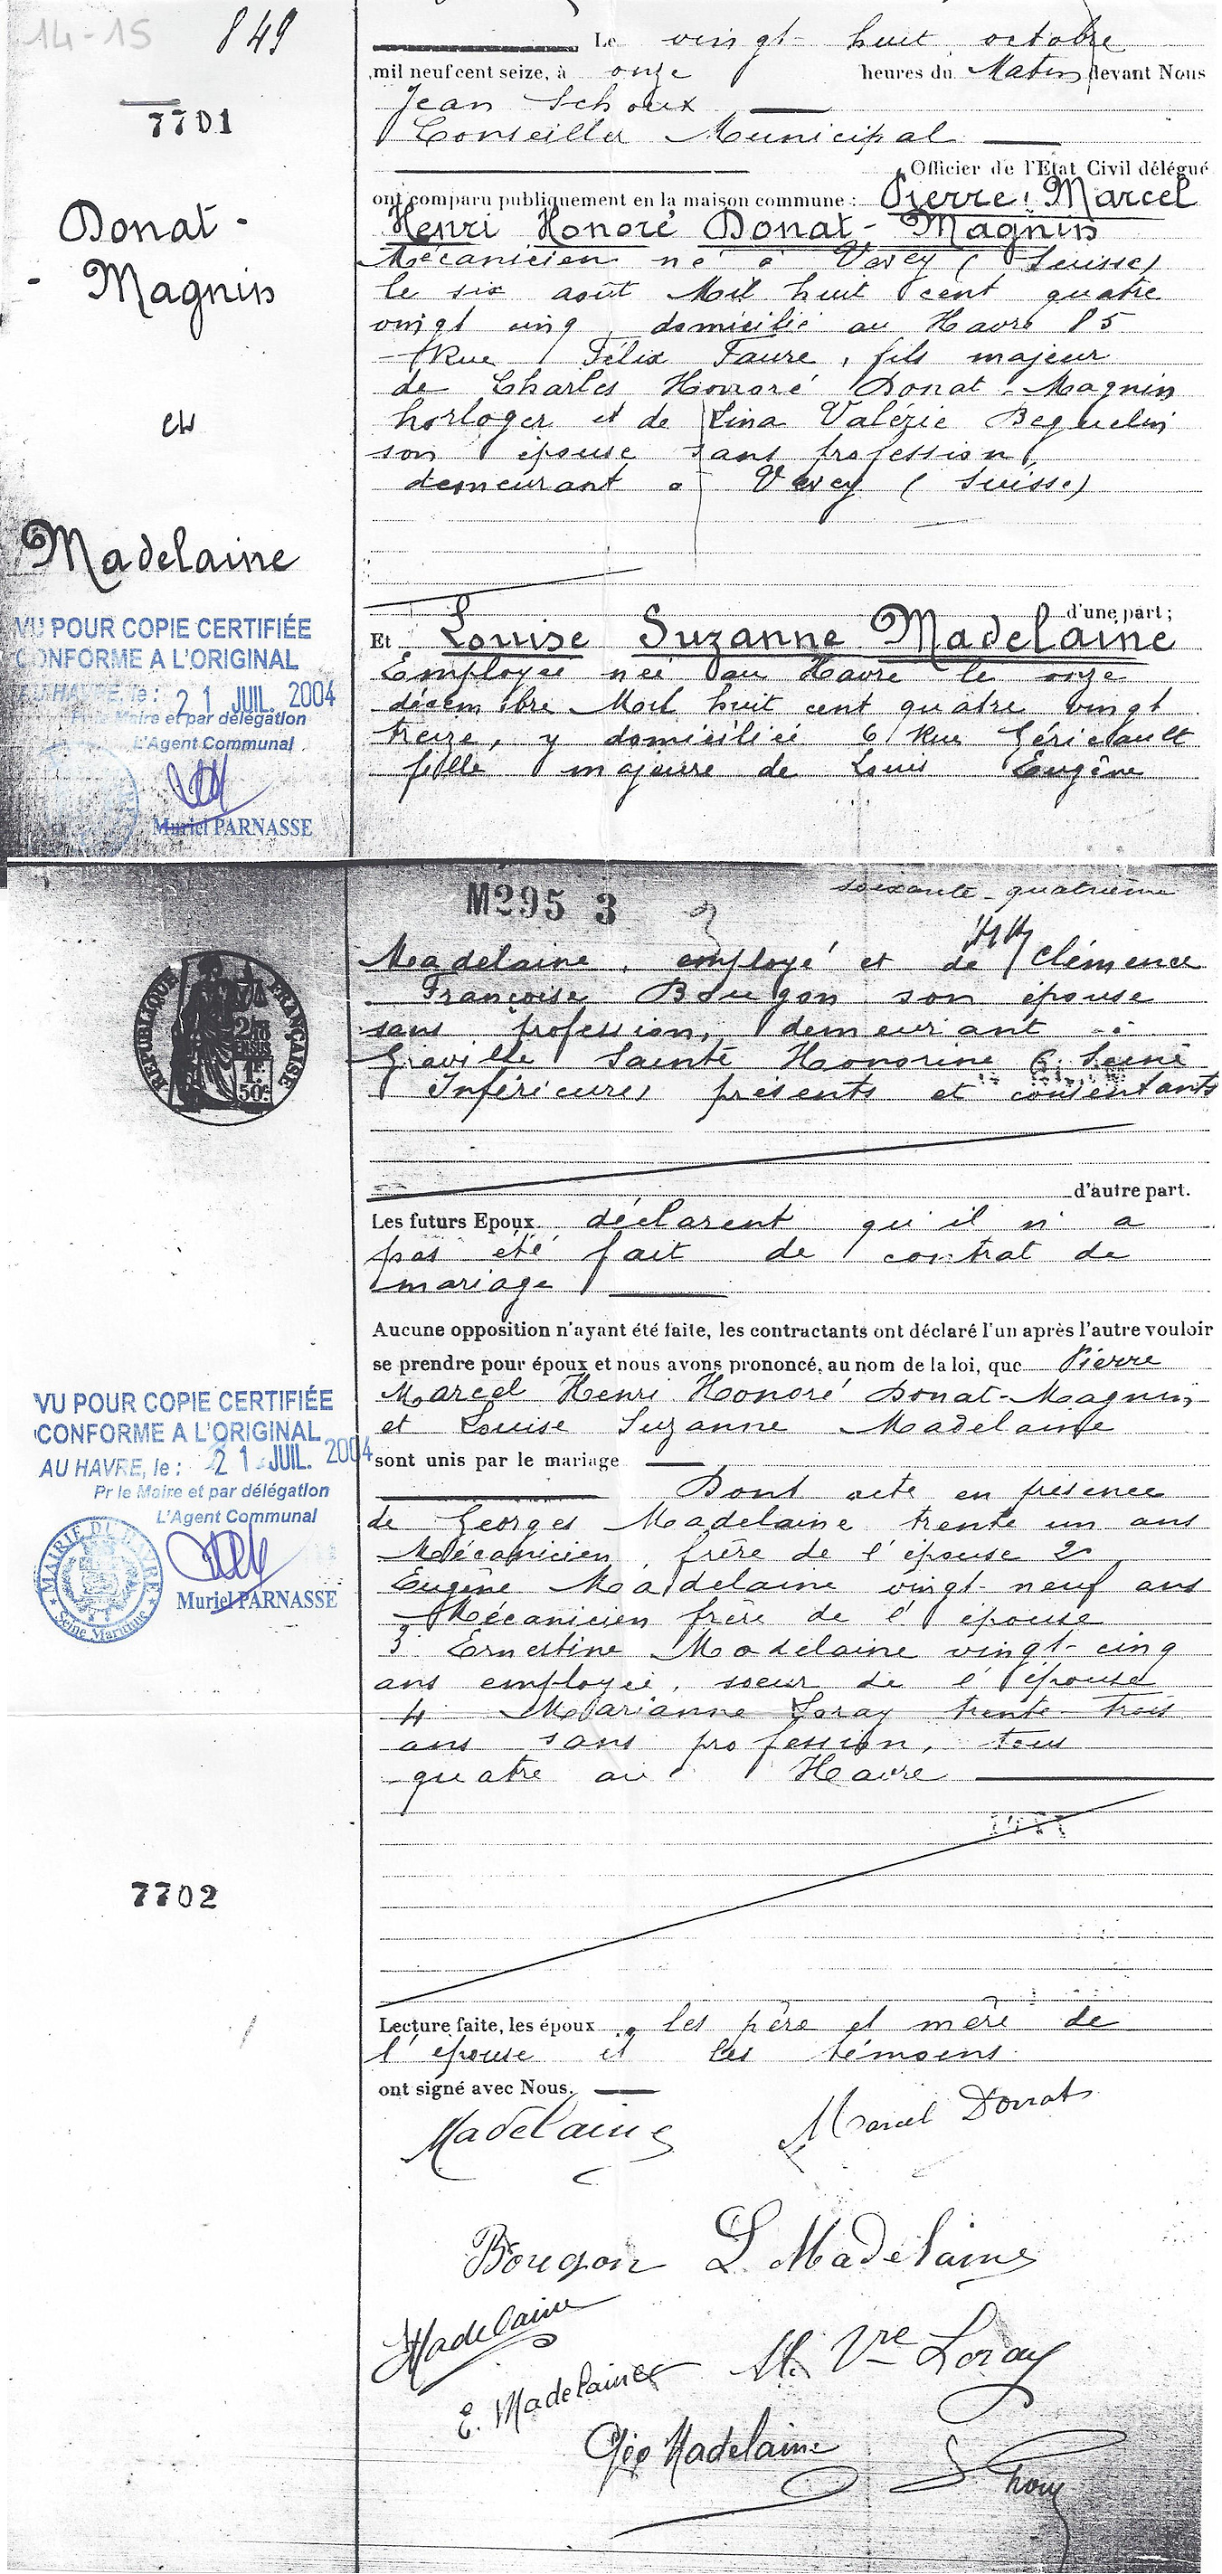 14-15
849
7701
Donat-
- Magnin
et
Madelaine
VU POUR COPIE CERTIFIÉE
CONFORME A L'ORIGINAL
AU HAVRE, le : 21 JUIL. 2004
Pr le Maire et par délégation
L'Agent Communal
Muriel PARNASSE
Le vingt-huit octobre
mil neuf cent seize, à onze heures du Matin devant Nous
Jean Schoux
Conseiller Municipal
Officier de l'Etat Civil délégué
ont comparu publiquement en la maison commune : Pierre Marcel
Henri Honoré Donat-Magnin
Mécanicien né à Vevey (Suisse)
le six août Mil huit cent quatre
vingt cinq, domicilié au Havre 85
Rue Félix Faure, fils majeur
de Charles Honoré Donat-Magnin
horloger et de Lina Valérie Beguelin
son épouse sans profession,
demeurant à Vevey (Suisse)
d'une part ;
Et Louise Suzanne Madelaine
Employée née au Havre le onze
décembre Mil huit cent quatre vingt
treize, y domiciliée 6 Rue Géricault
fille majeure de Louis Eugène
M295 3
soixante-quatrième
Madelaine, employé et de Clémence
Françoise Bougon son épouse
sans profession, demeurant à
Graville Sainte Honorine (Seine
Inférieure) présents et consentants
d'autre part.
Les futurs Epoux déclarent qu'il n'a
pas été fait de contrat de
mariage
Aucune opposition n'ayant été faite, les contractants ont déclaré l'un après l'autre vouloir
se prendre pour époux et nous avons prononcé, au nom de la loi, que Pierre
Marcel Henri Honoré Donat-Magnin
et Louise Suzanne Madelaine
sont unis par le mariage
Dont acte en présence
de Georges Madelaine trente un ans
Mécanicien, frère de l'épouse 2°
Eugène Madelaine vingt-neuf ans
Mécanicien frère de l'épouse
3° Ernestine Madelaine vingt-cinq
ans employée, soeur de l'épouse
4 Marianne Loray trente-trois
ans sans profession, tous
quatre au Havre
Lecture faite, les époux, les père et mère de
l'épouse et les témoins
ont signé avec Nous.
RÉPUBLIQUE FRANÇAISE
1F.
50c
VU POUR COPIE CERTIFIÉE
CONFORME A L'ORIGINAL
AU HAVRE, le : 21 JUIL. 2004
Pr le Maire et par délégation
L'Agent Communal
MAIRIE DU HAVRE
Seine Maritime
Muriel PARNASSE
7702
Madelaine
Marcel Donat
Bougon L Madelaine
Madelaine
E. Madelaine M. Vve Loray
Geo Madelaine